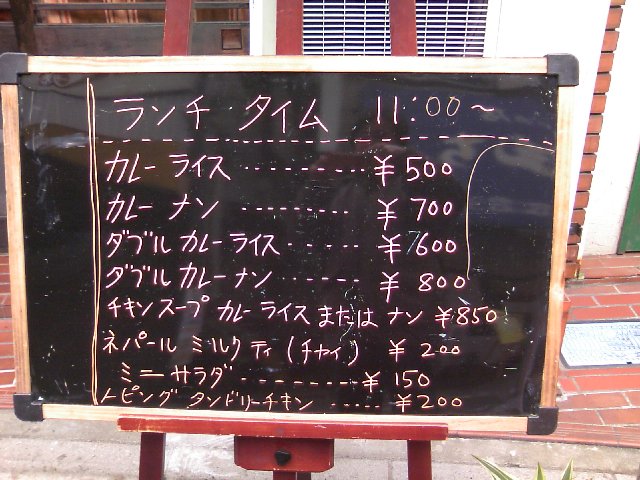 ランチ タイム 11:00~
カレーライス ---------- ¥500
カレーナン --------- ¥700
ダブルカレーライス ----- ¥600
ダブルカレーナン ------ ¥800
チキンスープ カレーライス または ナン ¥850
ネパール ミルクティ (チャイ) ¥200
ミニサラダ --------- ¥150
トピング タンドリーチキン ----- ¥200